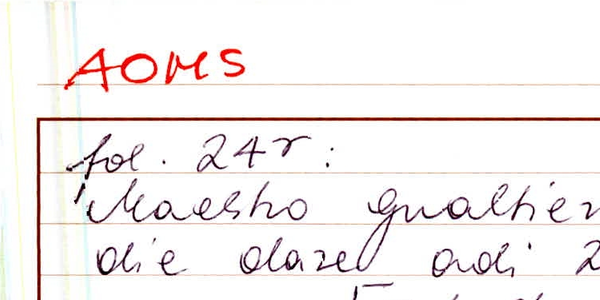 AOMS
fol. 24r:
'Maestro gualtier
die dare adi 2